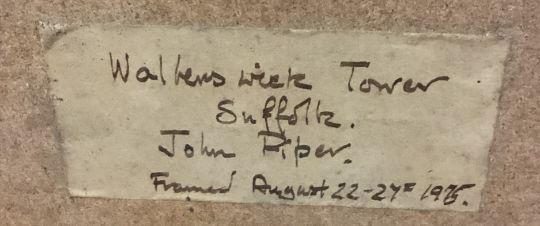 Walberswick Tower
Suffolk.
John Piper.
Framed August 22-27= 1975.